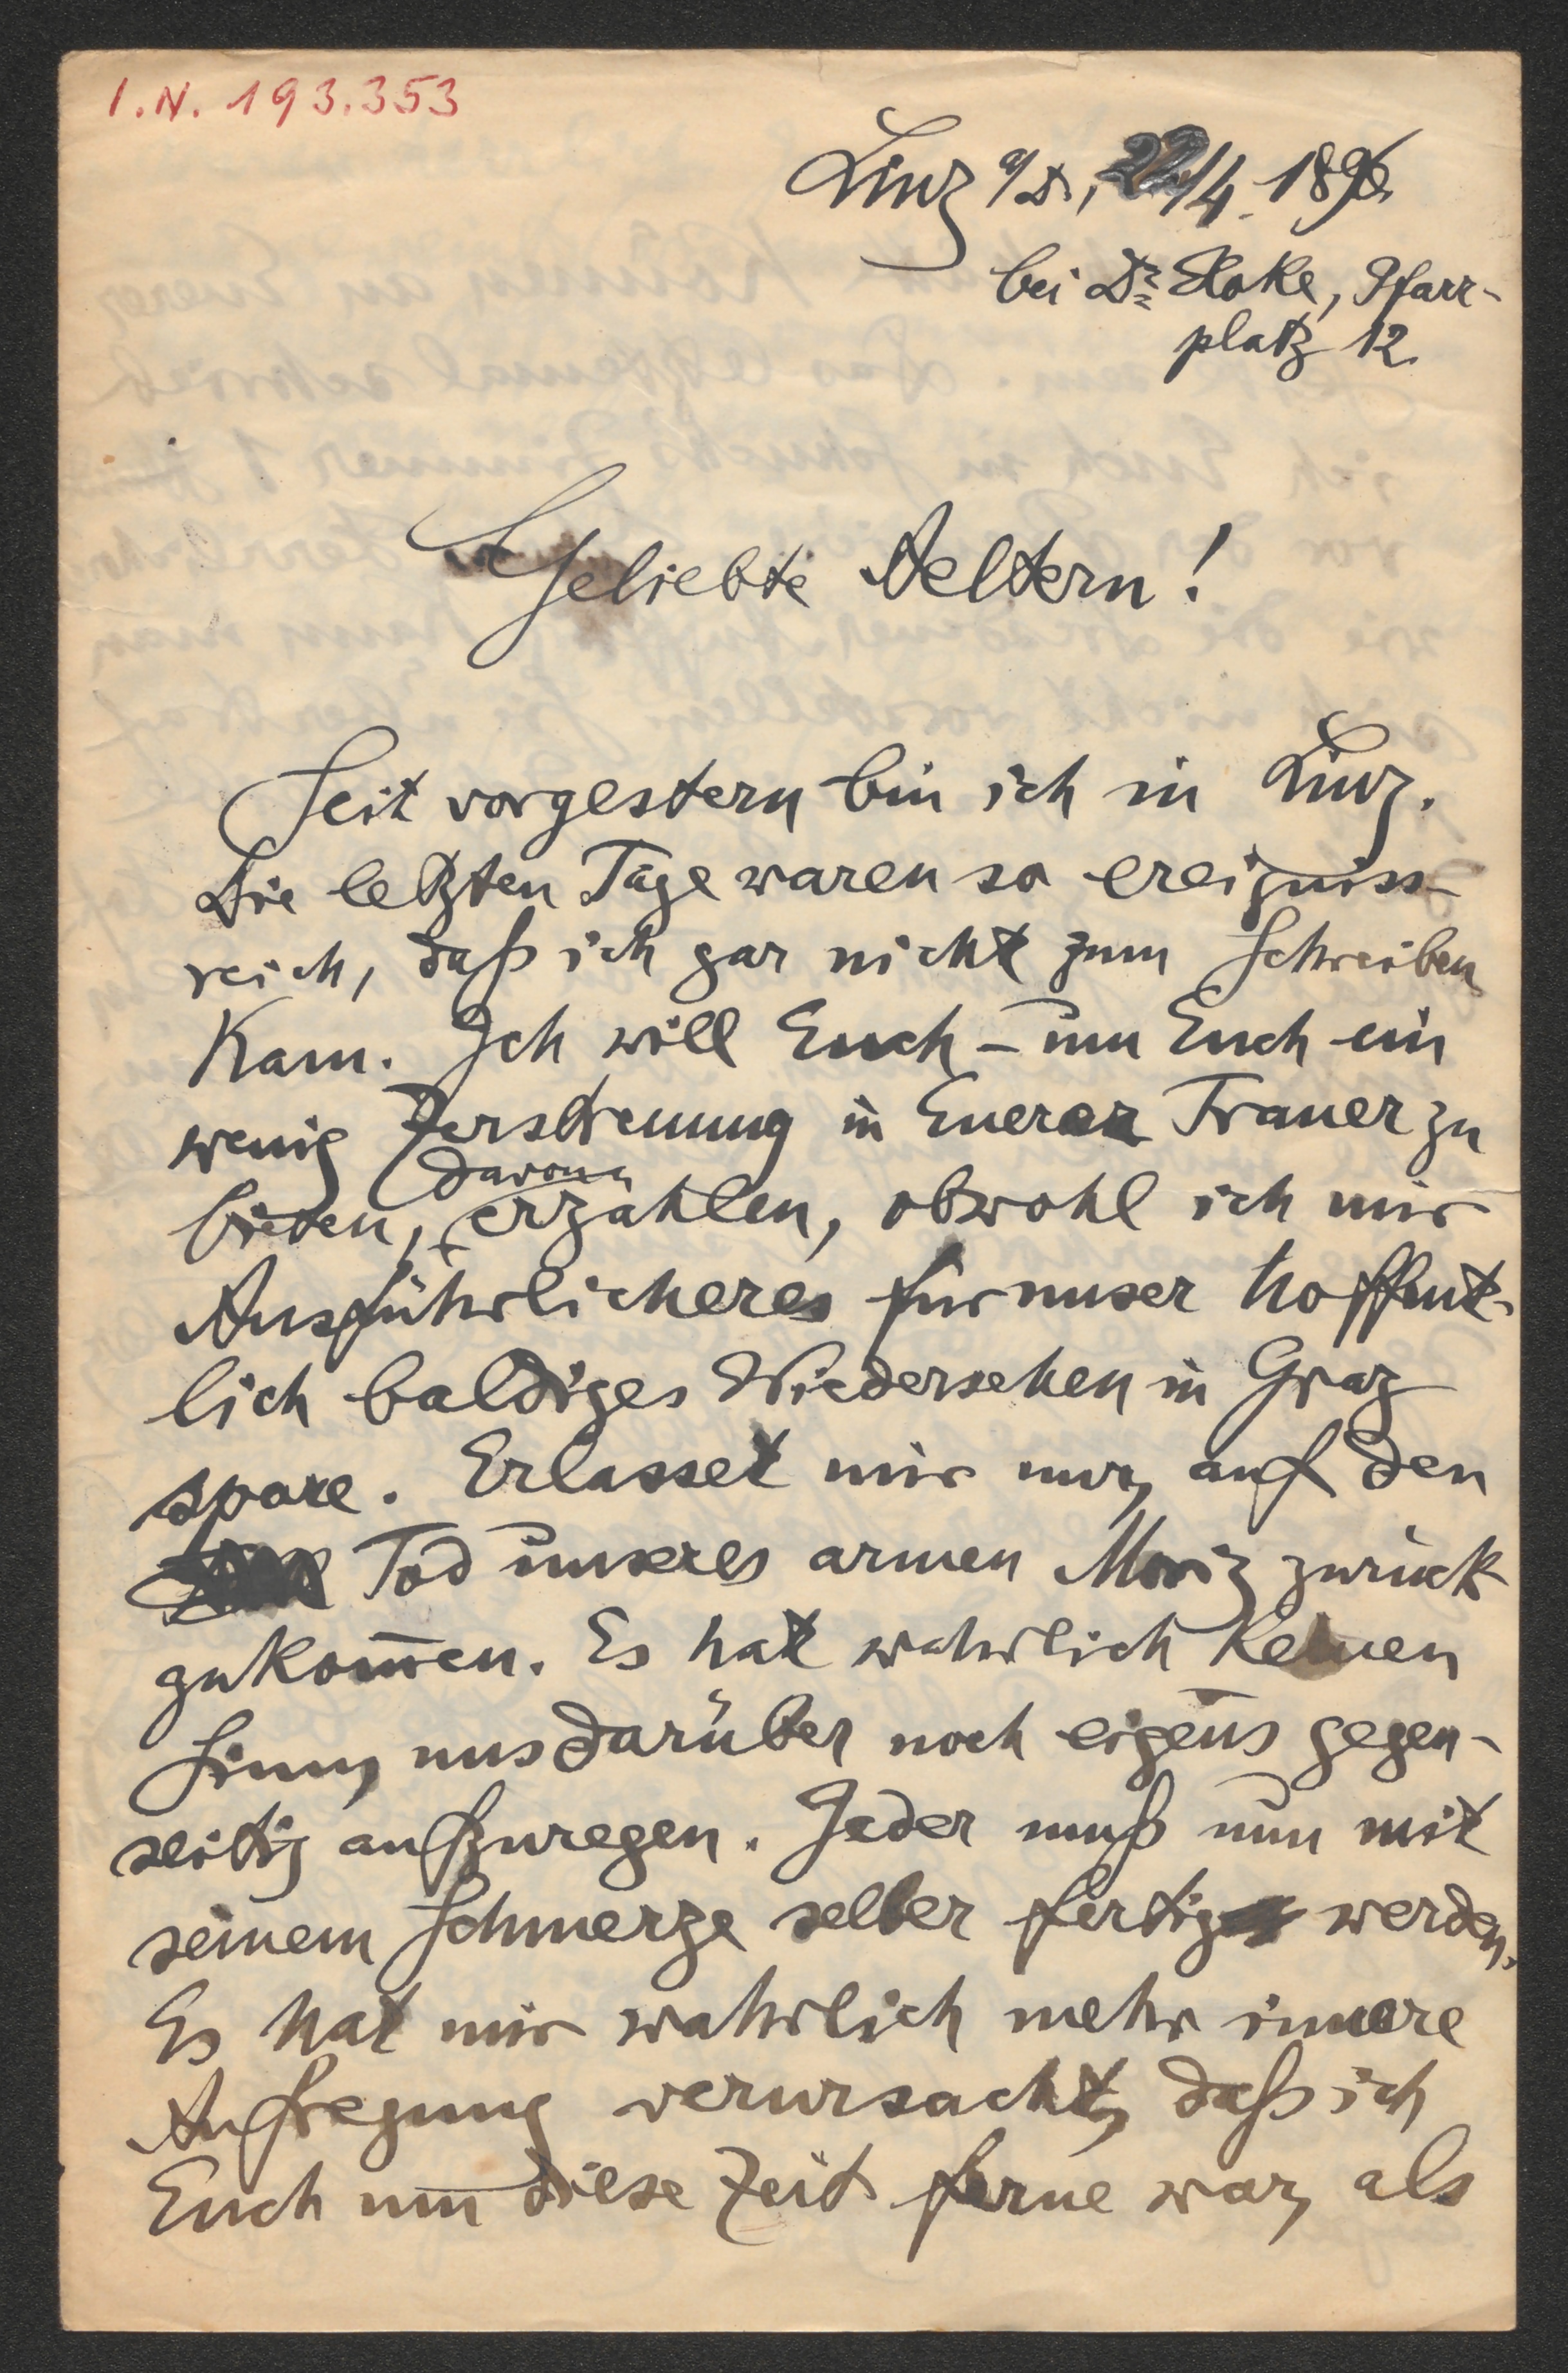 I.N. 193.353
Linz a/D., 22/4. 1896.
bei Dr Hoke, Pfarr-
platz 12.
Geliebte Aeltern!
Seit vorgestern bin ich in Linz.
Die letzten Tage waren so ereigniss-
reich, daß ich gar nicht zum Schreiben
kam. Ich will Euch – um Euch ein
wenig Zerstreuung in Euerer Trauer zu
bieten, davon erzählen, obwohl ich mir
Ausführlicheres für unser hoffent-
lich baldiges Wiedersehen in Graz
spare. Erlasset mir nur, auf den
Tod unseres armen Moriz zurück
zukom̄en. Es hat wahrlich keinen
Sinn, uns darüber noch eigens gegen-
seitig aufzuregen. Jeder muß nun mit
seinem Schmerze selber fertig werden.
Es hat mir wahrlich mehr innere
Aufregung verursacht, daß ich
Euch um diese Zeit ferne war, als